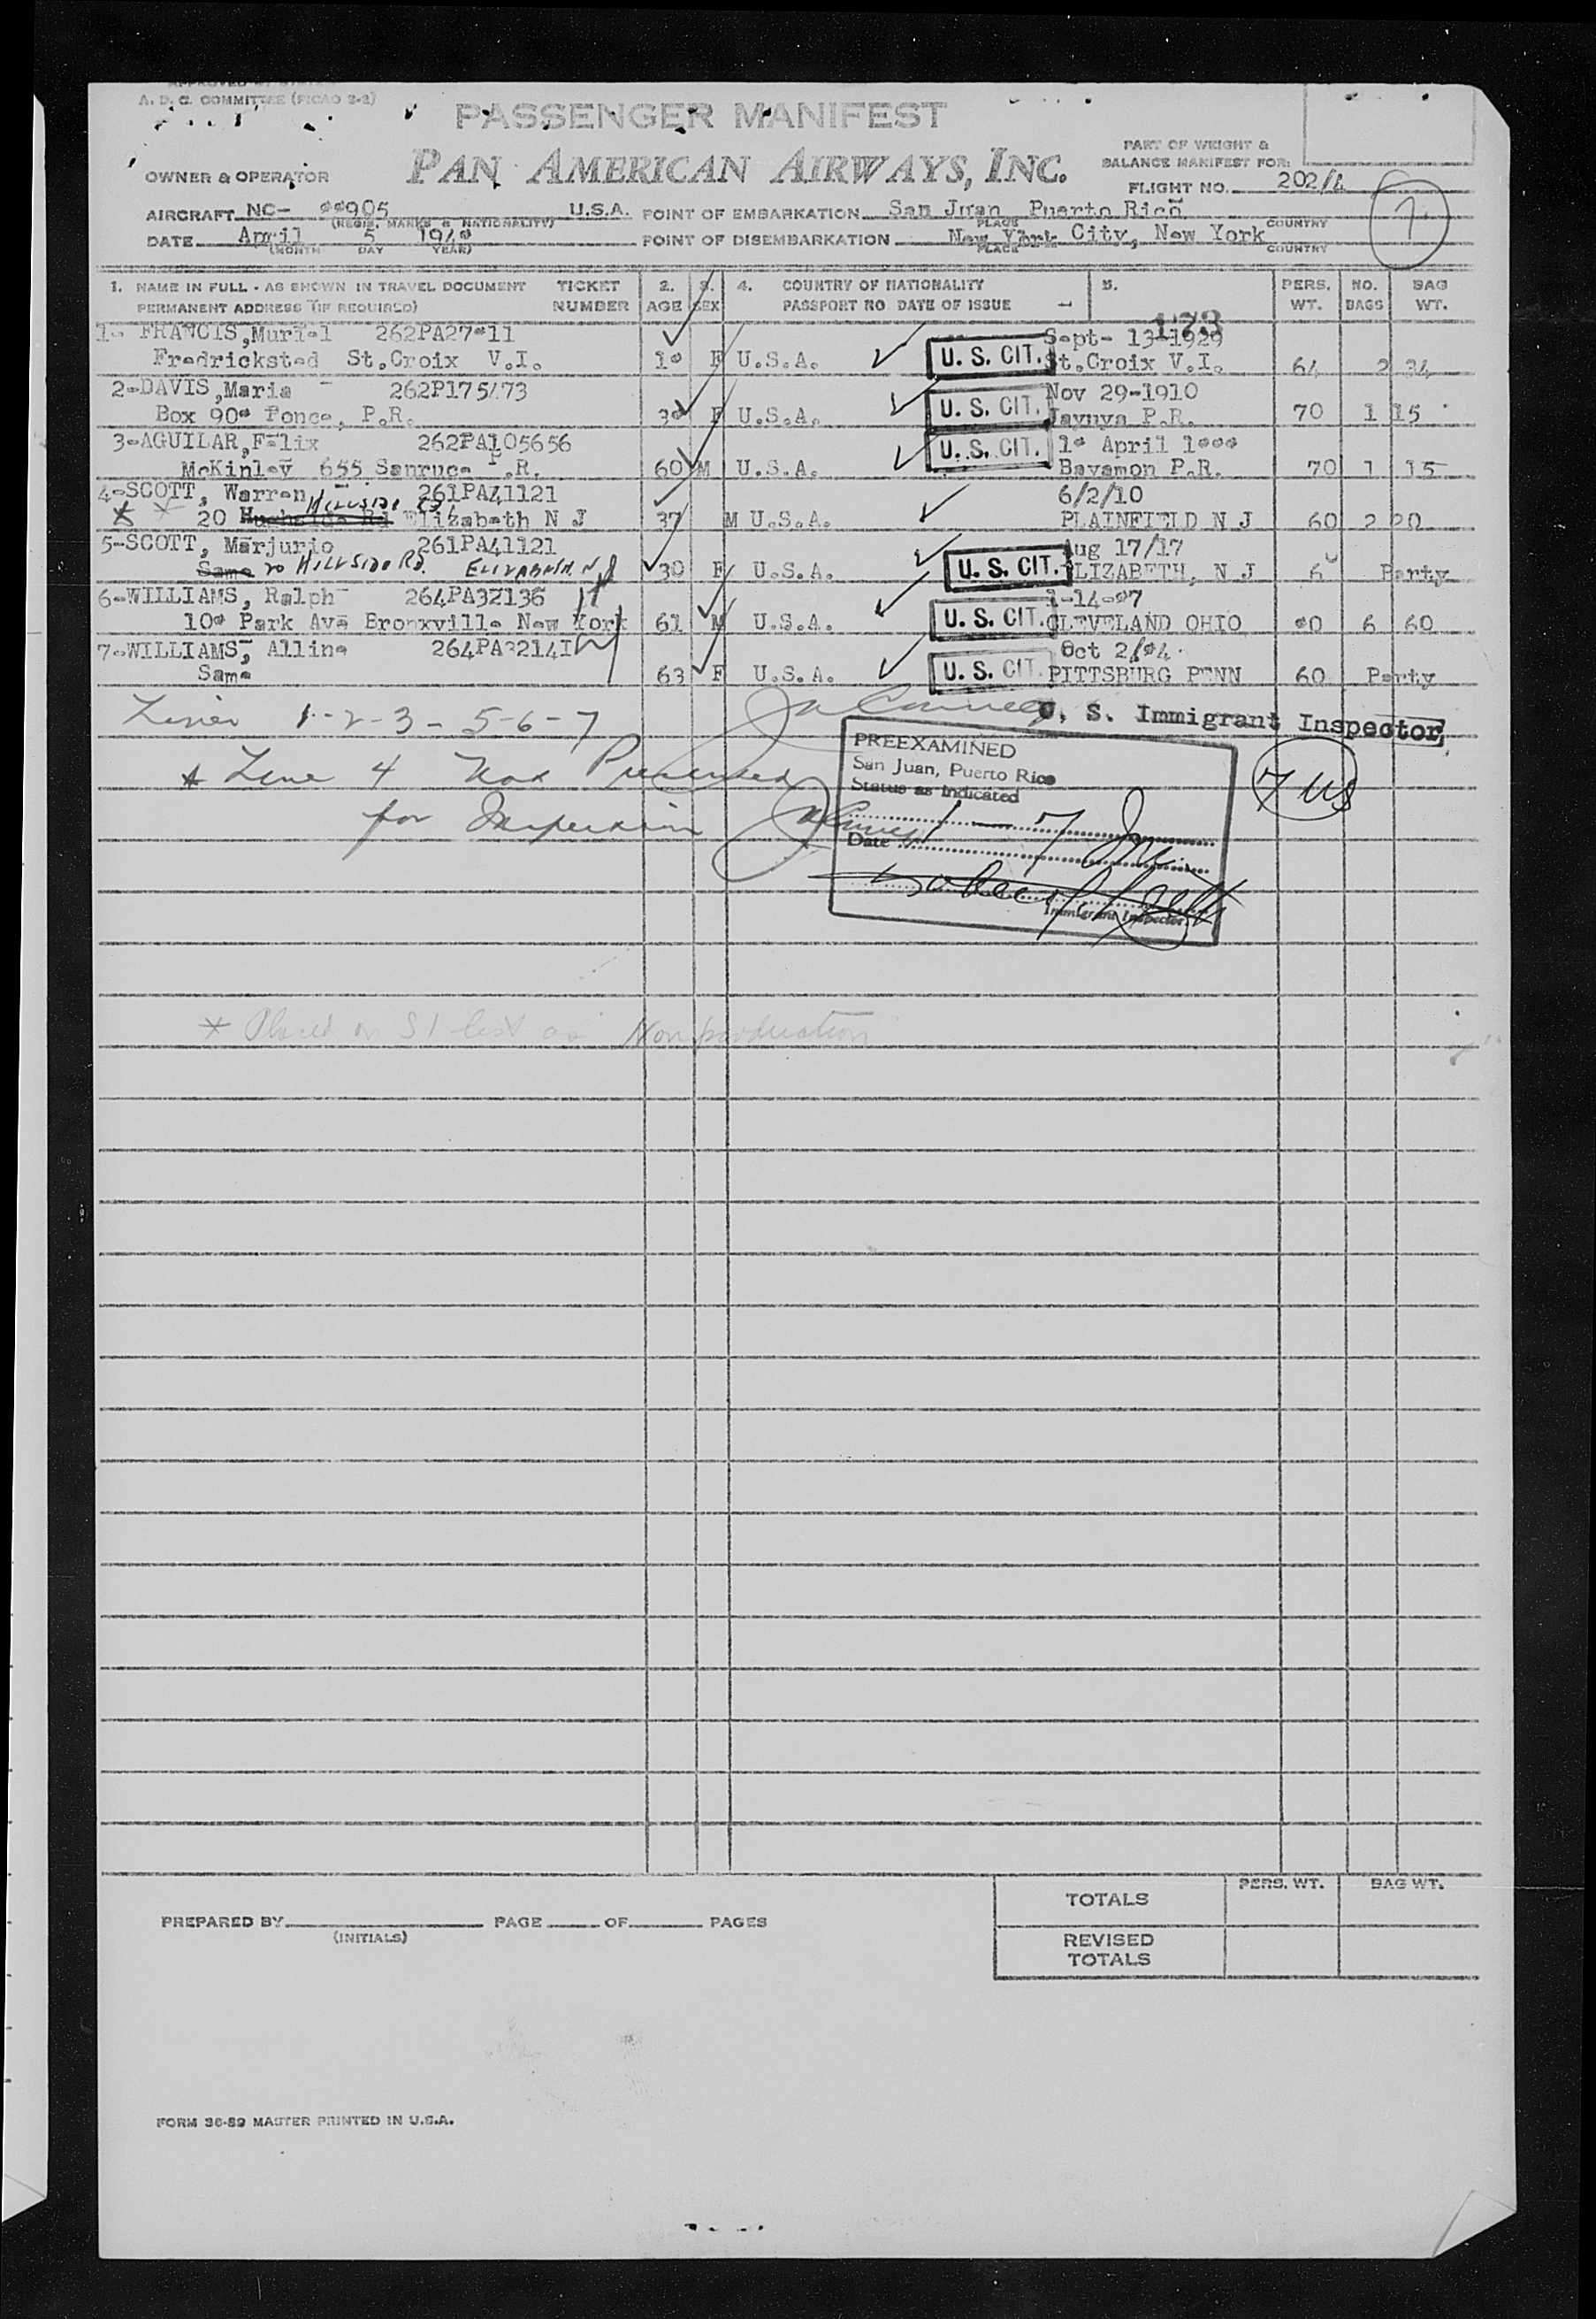 A. D. C. COMMITTEE (PICAO 2-2)
PASSENGER MANIFEST
PAN AMERICAN AIRWAYS, INC.
PART OF WEIGHT &
BALANCE MANIFEST FOR:
OWNER & OPERATOR
FLIGHT NO. 202/4
7
AIRCRAFT NC- **905 U.S.A. POINT OF EMBARKATION San Juan Puerto Rico
(REGIS. MARKS & NATIONALITY) PLACE COUNTRY
DATE April 5 194* POINT OF DISEMBARKATION New York City, New York
(MONTH DAY YEAR) PLACE COUNTRY
1. NAME IN FULL - AS SHOWN IN TRAVEL DOCUMENT TICKET 2. 3. 4. COUNTRY OF NATIONALITY 5. PERS. NO. BAG
PERMANENT ADDRESS (IF REQUIRED) NUMBER AGE SEX PASSPORT NO DATE OF ISSUE WT. BAGS WT.
173
1- FRANCIS,Muriel 262PA27*11 Sept- 13-1929
Fredricksted St.Croix V.I. 1* F U.S.A. U. S. CIT. St.Croix V.I. 64 2 34
2-DAVIS,Maria 262P175473 Nov 29-1910
Box 90* Ponce, P.R. 3* F U.S.A. U. S. CIT. Jayuya P.R. 70 1 15
3-AGUILAR,Felix 262PA105656 1* April 1***
McKinley 655 Sanruce P.R. 60 M U.S.A. U. S. CIT. Bayamon P.R. 70 1 15
4-SCOTT, Warren 261PA41121 6/2/10
HILLSIDE Rd.
20 Elizabeth N J 37 M U.S.A. PLAINFIELD N J 60 2 20
5-SCOTT, Marjurio 261PA41121 Aug 17/17
Same 20 HILLSIDE RD. ELIZABETH. N.J 30 F U.S.A. U. S. CIT. ELIZABETH, N J 6 Party
6-WILLIAMS, Ralph 264PA32136 1-14-*7
10* Park Ave Bronxville New York 61 M U.S.A. U. S. CIT. CLEVELAND OHIO *0 6 60
7-WILLIAMS, Alline 264PA32141 Oct 2/*4.
Same 63 F U.S.A. U. S. CIT. PITTSBURG PENN 60 Party
Lines 1-2-3-5-6-7
U. S. Immigrant Inspector
* Line 4 Not Presented
for Inspection
PREEXAMINED
San Juan, Puerto Rico
Status as Indicated
1 - 7 Inc.
Date
Immigrant Inspector
7 US
* Placed on SI list as Nonproduction
PREPARED BY PAGE OF PAGES
(INITIALS)
PERS. WT. BAG WT.
TOTALS
REVISED
TOTALS
FORM 36-89 MASTER PRINTED IN U.S.A.